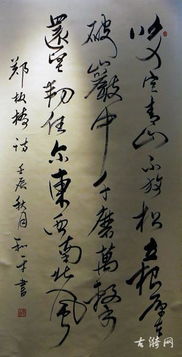 咬定青山不放松立根原在
破巖中千磨萬擊
還堅韌任尔東西南北風
鄭板橋詩 壬辰秋月 和平書